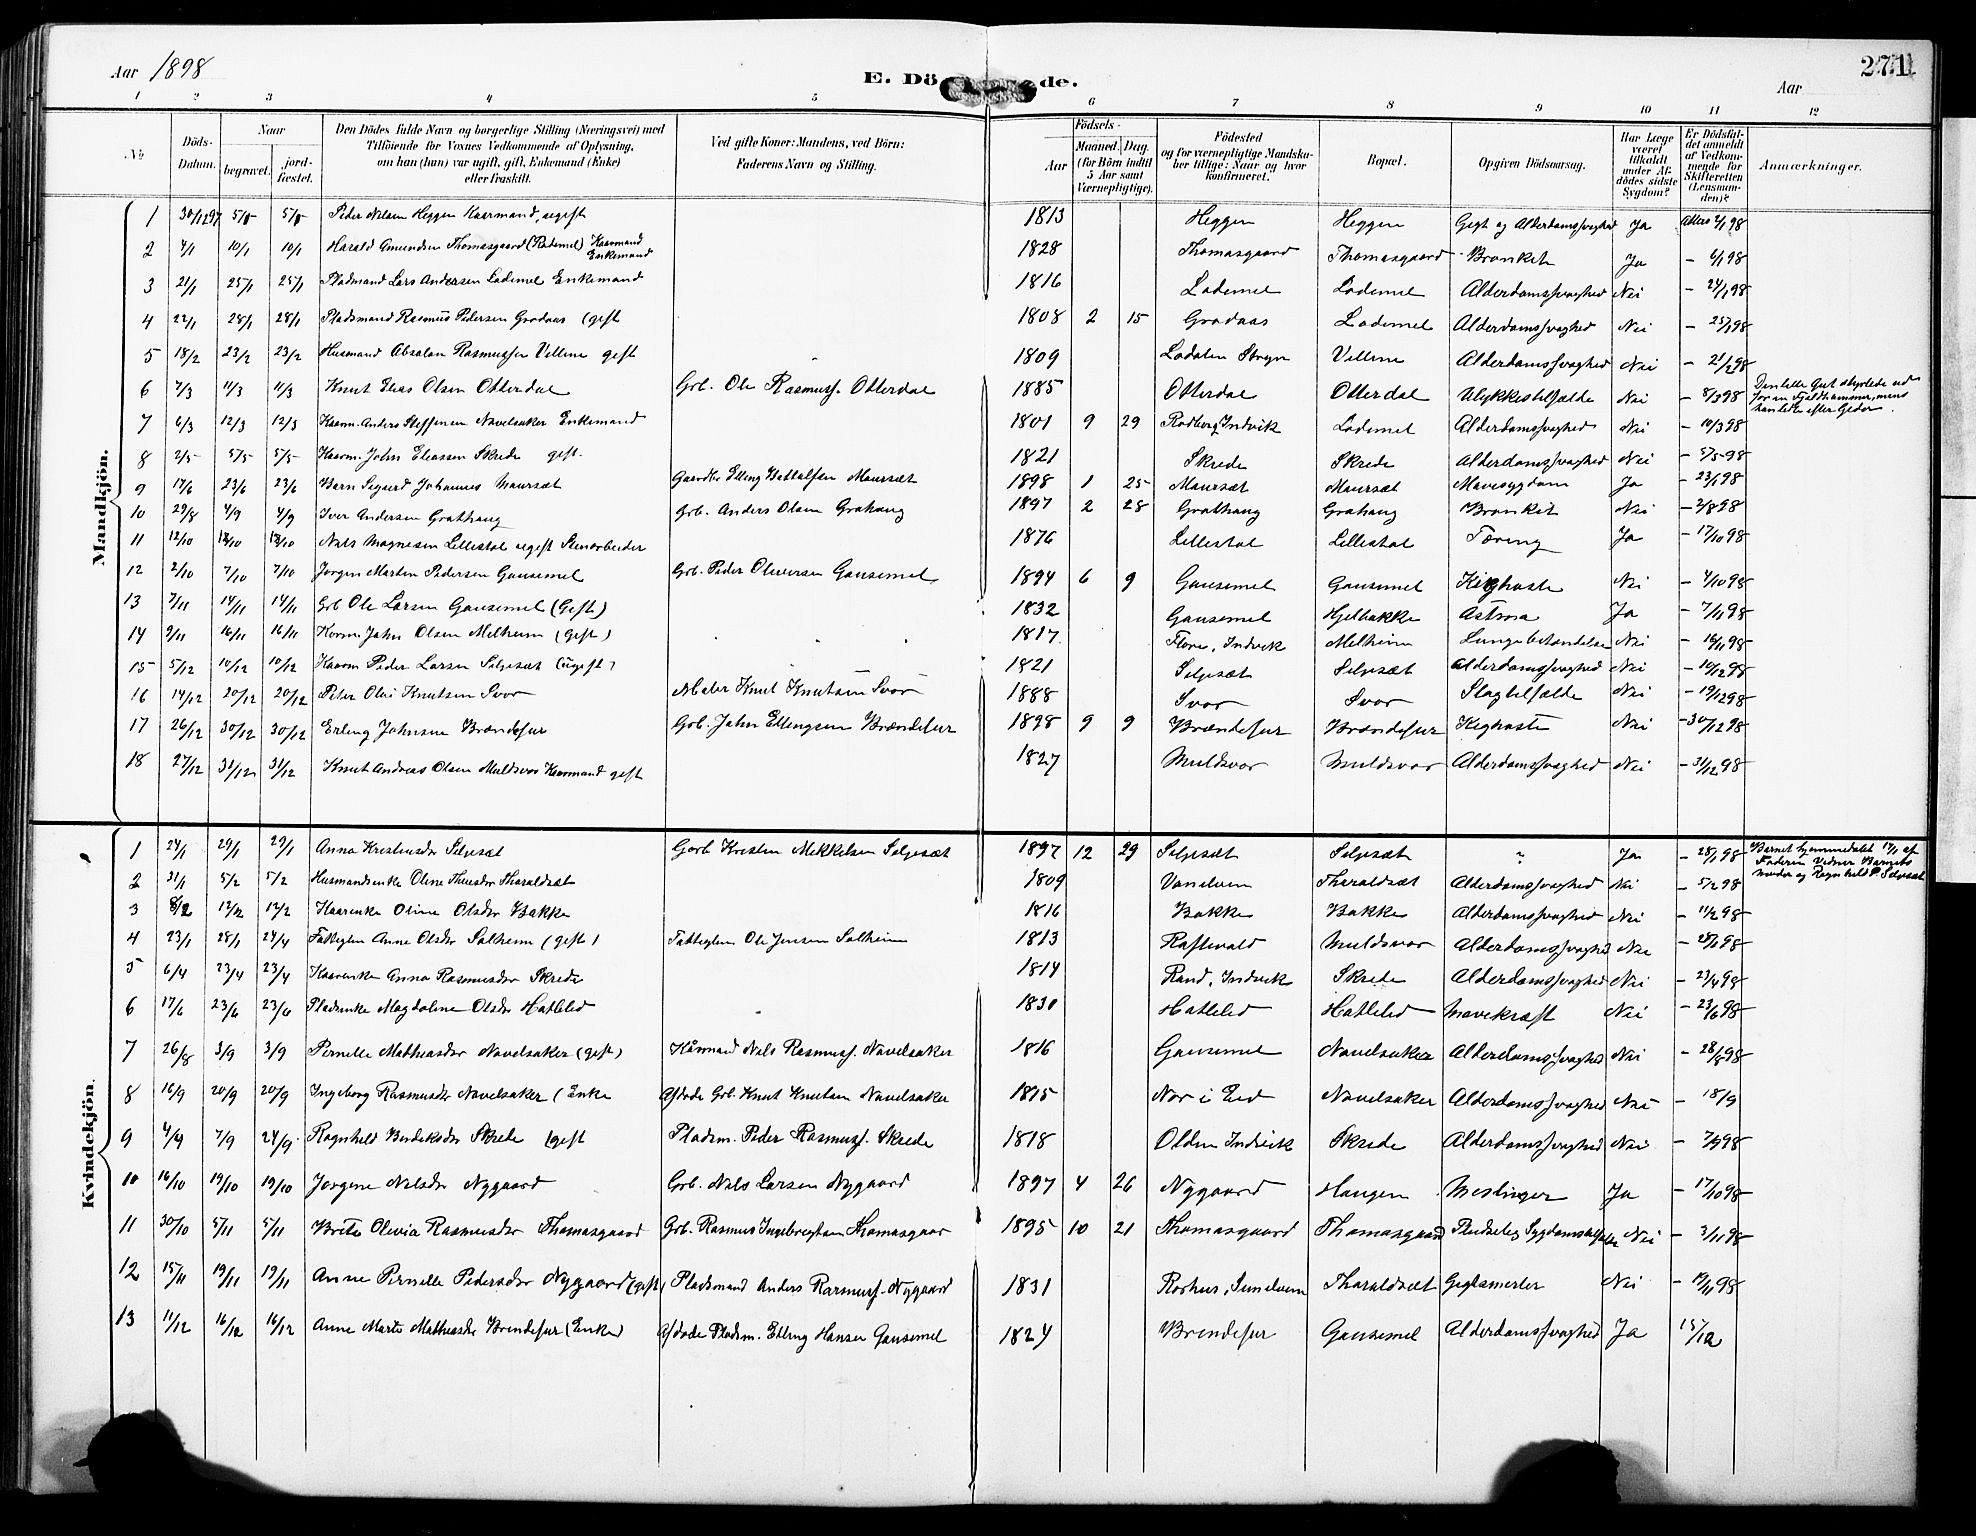 Aar 1898
E. Dö de.
Aar
271.
1 2 3 4 5 6 7 8 9 10 11 12
No
Döds-Datum.
Naar
begravet.
jordfæstet.
Den Dödes fulde Navn og borgerlige Stilling (Næringsvei) med
Tilföiende for Voxnes Vedkommende af Oplysning,
om han (hun) var ugift, gift, Enkemand (Enke)
eller fraskilt.
Ved gifte Koner: Mandens, ved Börn:
Faderens Navn og Stilling.
Födsels-
Aar
Maaned. Dag.
(for Börn indtil
5 Aar samt
Værnepligtige).
Födested
og for værnepligtige Mandska-
ber tillige: Naar og hvor
konfirmeret.
Bopæl.
Opgiven Dödsaarsag.
Har Læge
været
tilkaldt
under Af-
dödes sidste
Sygdom?
Er Dödsfal-
det anmeldt
af Vedkom-
mende for
Skifteretten
(Lensman-
den)?
Anmærkninger.
Mandkjön.
1 30/12 97 5/1 Peder Nilsen Heggen Kaarmand, ugift 1813 Heggen Heggen Gigt og Alderdomssvaghed Ja
2 4/1 10/1 10/1 Harald Amundsen Thomasgaard (Lademel) Kaarmand Enkemand 1828 Thomasgaard Thomasgaard Bronkit Ja – 6/1 98
3 21/1 25/1 25/1 Pladsmand Lars Andersen Lademel Enkemand 1816 Lademel Lademel Alderdomssvaghed Nei – 24/1 98
4 22/1 28/1 28/1 Pladsmand Rasmus Pedersen Grodaas (gift 1808 2 15 Grodaas Lademel Alderdomssvaghed Nei – 25/1 98
5 18/2 23/2 23/2 Husmand Absalon Rasmussen Vellene gift 1809 Lodalen Stryn Vellene Alderdomssvaghed Nei – 21/2 98
6 7/3 11/3 11/3 Knut Elias Olsen Otterdal Grb. Ole Rasmuss. Otterdal 1885 Otterdal Otterdal Ulykkestilfælde Nei – 8/3 98 Den lille Gut styrtede ud for en Fjeldhammer, mens han ledte efter Geder.
7 6/3 12/3 12/3 Kaarm. Anders Steffensen Navelsaker Enkemand 1801 9 29 Rodberg, Indvik Lademel Alderdomssvaghed Nei – 10/3 98
8 2/5 5/5 5/5 Kaarm. John Eliassen Skrede gift. 1821 Skrede Skrede Alderdomssvaghed Nei – 5/5 98
9 17/6 23/6 23/6 Barn Sigurd Johannes Maursæt Gaardbr. Elling Maursæt 1898 1 25 Maursæt Maursæt Mavesygdom Ja
10 29/8 4/9 4/9 Iver Andersen Grathaug Grb. Anders Olsen Grahaug 1897 2 28 Grathaug Grahaug Bronkit Nei
11 12/10 18/10 18/10 Nils Magnesen Lillestøl ugift Stenarbeider 1876 Lillestøl Lillestøl Tæring Ja – 17/10 98
12 2/10 7/10 7/10 Jørgen Martin Pedersen Gausemel Grb. Peder Oliversen Gausemel 1894 6 9 Gausemel Gausemel Kighoste Nei – 4/10 98
13 7/11 14/11 14/11 Grb Ole Larsen Gausemel (Gift) 1832 Gausemel Hjelbakke Astma Ja – 7/11 98
14 9/11 16/11 16/11 Korm. John Olsen Melheim (gift) 1817 Flore, Indvik Melheim Lungebetændelse Nei – 16/11 98
15 5/12 10/12 10/12 Kaarm Peder Larsen Seljesæt (ugift) 1821 Seljesæt Seljesæt Alderdomssvaghed Nei – 10/12 98
16 14/12 20/12 20/12 Peter Olai Knutsen Svor Maler Knut Knutsen Svor 1888 Svor Svor Slagtilfælde Nei – 19/12 98
17 26/12 30/12 30/12 Erling Johnsen Brændefur Grb. John Ellingsen Brændefur 1898 9 9 Brændefur Brændefur Kighoste Nei – 30/12 98
18 27/12 31/12 31/12 Knut Andreas Olsen Muldsvor Kaarmand gift 1827 Muldsvor Muldsvor Alderdomssvaghed Nei – 31/12 98
Kvindekjön.
1 24/1 29/1 29/1 Anna Kristensdr Seljesæt Garb Kristen Mikkelsen Seljesæt 1897 12 29 Seljesæt Seljesæt „ Ja – 28/1 98 Barnet hjemmedøbt 17/1 af Faderen Vidner Barnets moder og Ragnhild P. Seljesæt
2 31/1 5/2 5/2 Husmandsenke Oline Tharaldsæt 1809 Vanelven Tharaldsæt Alderdomssvaghed Nei – 5/2 98
3 8/2 12/2 12/2 Kaarenke Oline Olsdr Bakke 1816 Bakke Bakke Alderdomssvaghed Nei – 11/2 98
4 23/1 28/1 24/4 Fattiglem Anne Olsdr Solheim (gift) Fattiglem Ole Jensen Solheim 1813 Raftevold Muldsvor Alderdomssvaghed Nei – 25/1 98
5 6/4 23/4 23/4 Kaarenke Anna Rasmusdr Skrede 1814 Rand, Indvik Skrede Alderdomssvaghed Nei – 23/4 98
6 17/6 23/6 23/6 Pladsenke Magdalene Olsdr Hatleled 1830 Hatleled Hatleled Mavekræft Nei – 23/6 98
7 26/8 3/9 3/9 Pernille Mathiasdr Navelsaker (gift) Kårmand Nils Rasmuss. Navelsaker 1816 Gausemel Navelsaker Alderdomssvaghed Nei – 28/8 98
8 16/9 20/9 20/9 Ingeborg Rasmusdr Navelsaker (Enke Afdøde Grb. Knut Knutsen Navelsaker 1815 Nor i Eid Navelsaker Alderdomssvaghed Nei – 18/9
9 4/9 7/9 24/9. Ragnhild Bendiksdr Skrede (gift Pladsm. Peder Rasmuss. Skrede 1818 Olden Indvik Skrede Alderdomssvaghed Nei – 7/9 98
10 16/10 19/10 19/10 Jørgine Nilsdr Nygaard Grb. Nils Larsen Nygaard 1897 4 26 Nygaard Haugen Meslinger Ja – 17/10 98
11 30/10 5/11 5/11 Brite Olivia Rasmusdr Thomasgaard Grb. Rasmus Ingebrigtsen Thomasgaar 1895 10 21 Thomasgaard Thomasgaard Pludselig Sygdomstilfælde Nei – 3/11 98
12 15/11 19/11 19/11 Anne Pernille Pedersdr Nygaard (gift) Pladsmand Anders Rasmuss. Nygaard 1831 Rorhus, Sunelven Tharaldsæt Gigtsmerter Nei – 19/11 98
13 11/12 16/12 16/12 Anne Marte Mathiasdr Brendefur (Enke) Afdøde Pladsm. Elling Hansen Gausemel 1824 Brendefur Gausemel Alderdomssvaghed Ja 15/12